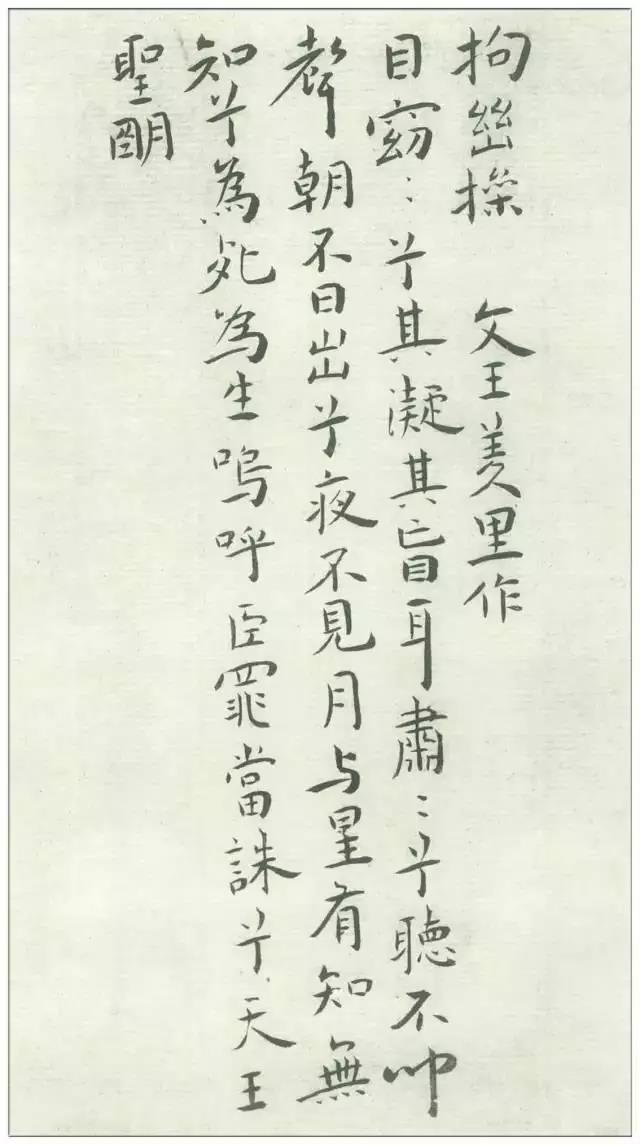 拘幽操 文王羑里作
目窈〻兮其凝其盲耳肅〻兮聽不聞
聲朝不日出兮夜不見月与星有知無
知兮為死為生嗚呼臣罪當誅兮天王
聖明